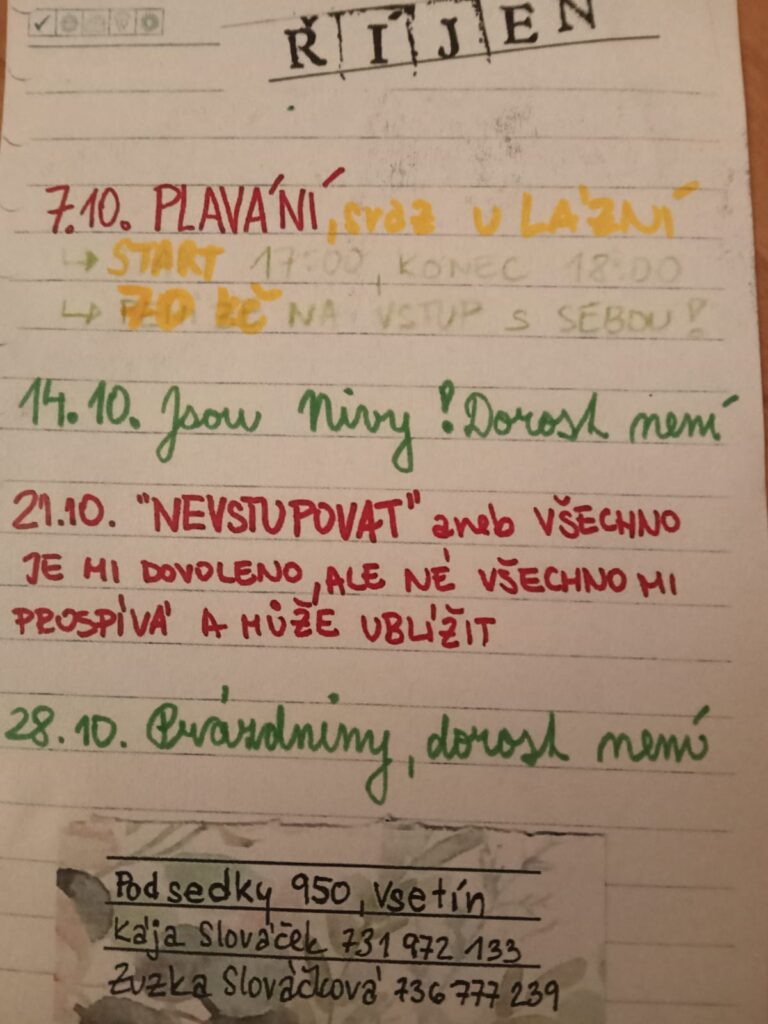 ŘÍJEN
7.10. PLAVÁNÍ, sraz U LÁZNÍ
↳ START 17:00, KONEC 18:00
↳ 70 kč NA VSTUP S SEBOU!
14.10. Jsou Nivy! Dorost není
21.10. "NEVSTUPOVAT" aneb VŠECHNO
JE MI DOVOLENO, ALE NÉ VŠECHNO MI
PROSPÍVÁ A MŮŽE UBLÍŽIT
28.10. Prázdniny, dorost není
Podsedky 950, Vsetín
Kája Slováček 731 972 133
Zuzka Slováčková 736 777 239